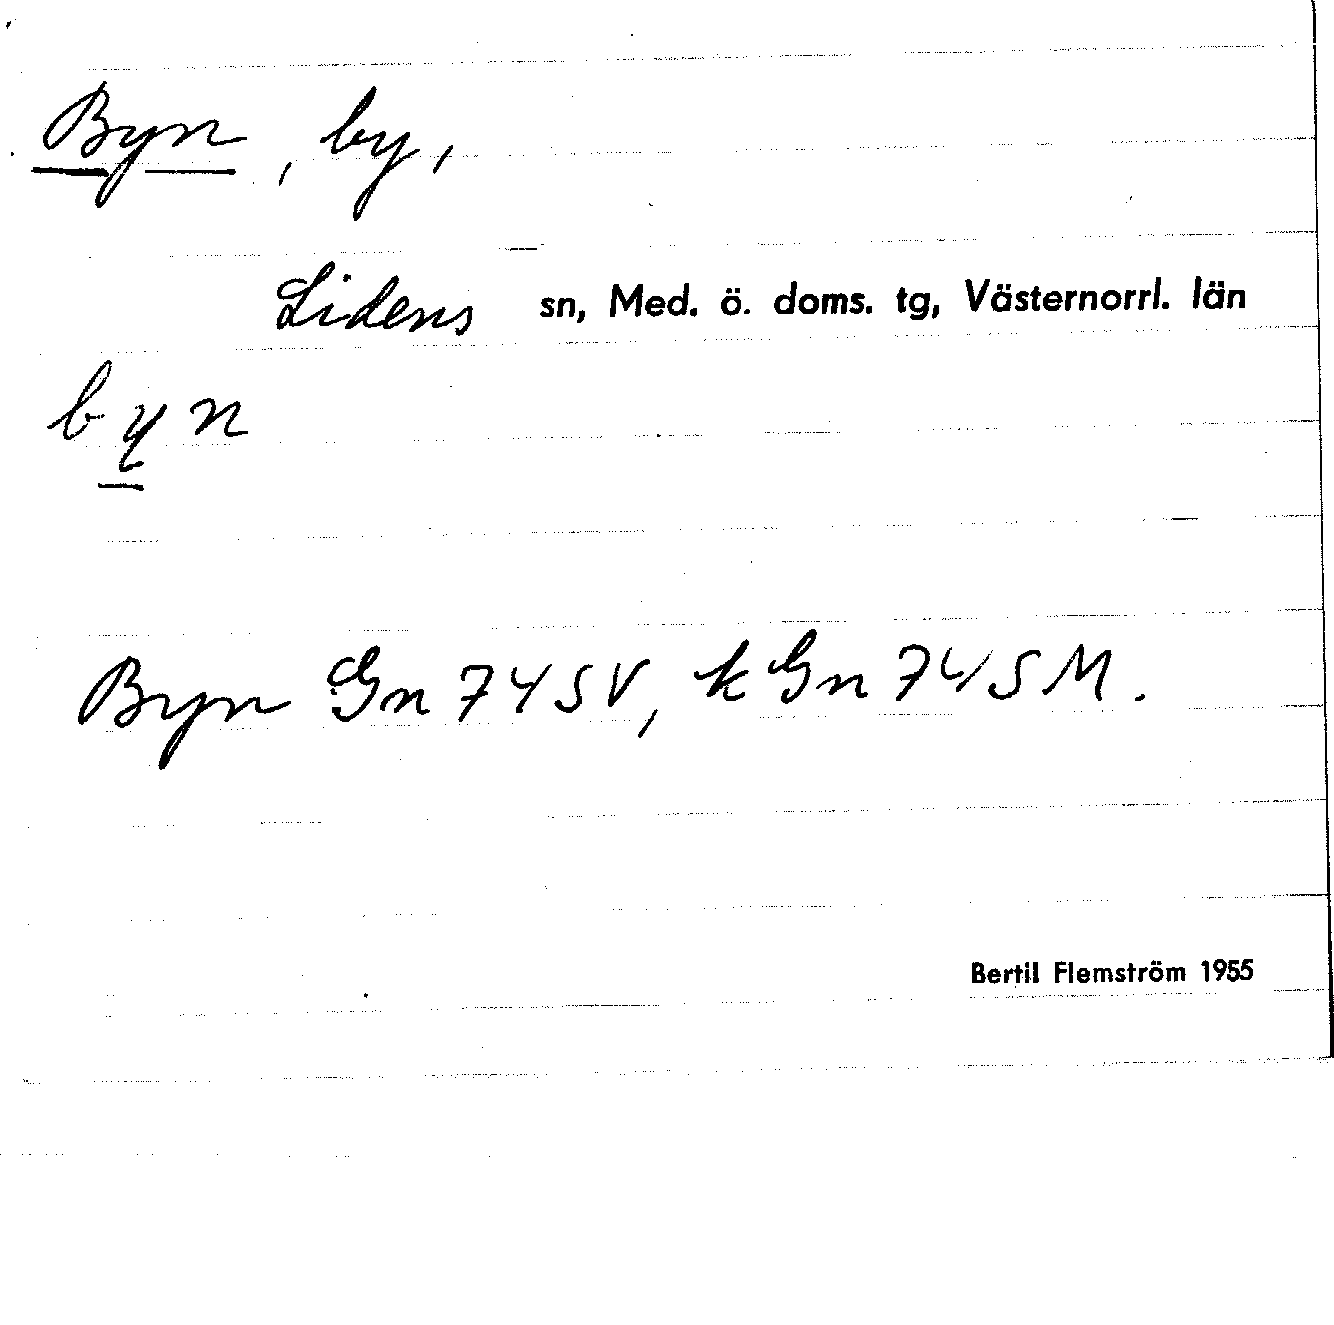 Byn, by,
Lidens sn, Med. ö. doms. tg, Västernorrl. län
byn
Byn Gn 74 SV, k Gn 74 SM.
Bertil Flemström 1955